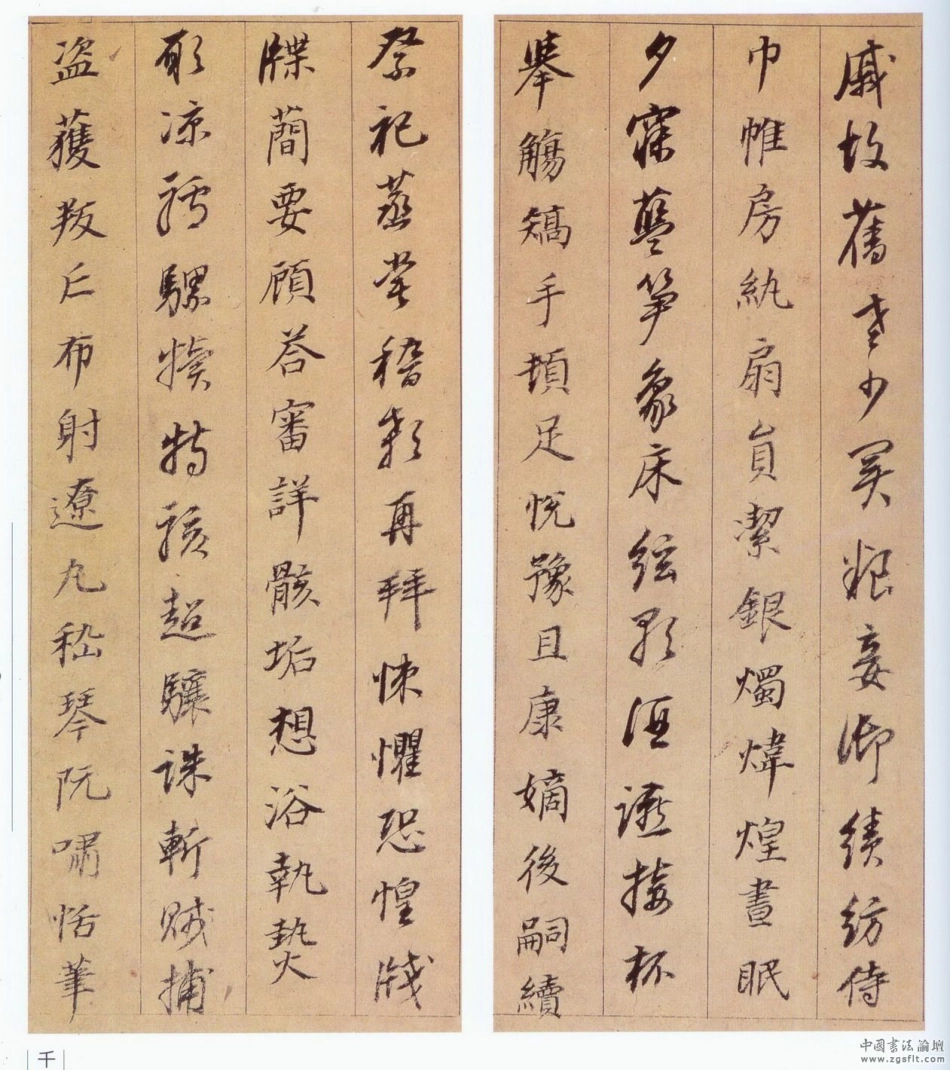 戚故舊老少異粮妾御績紡侍
巾帷房紈扇員潔銀燭煒煌晝眠
夕寐藍笋象床絃歌酒讌接杯
舉觴矯手頓足悅豫且康嫡後嗣續
祭祀蒸嘗稽顙再拜悚懼恐惶牋
牒蕳要顧荅審詳骸垢想浴執熱
願凉驢騾犢特駭超驤誅斬賊捕
盗獲叛亡布射遼丸嵇琴阮嘯恬筆
千
中國書法論壇
www.zgsflt.com